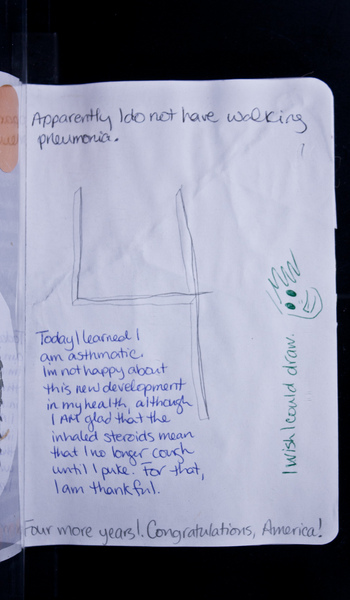 Apparently I do not have walking
pneumonia.
4
Today I learned I
am asthmatic.
Im not happy about
this new development
in my health, although
I AM glad that the
inhaled steroids mean
that I no longer cough
until I puke. For that,
I am thankful.
I wish I could draw.
Four more years! Congratulations, America!